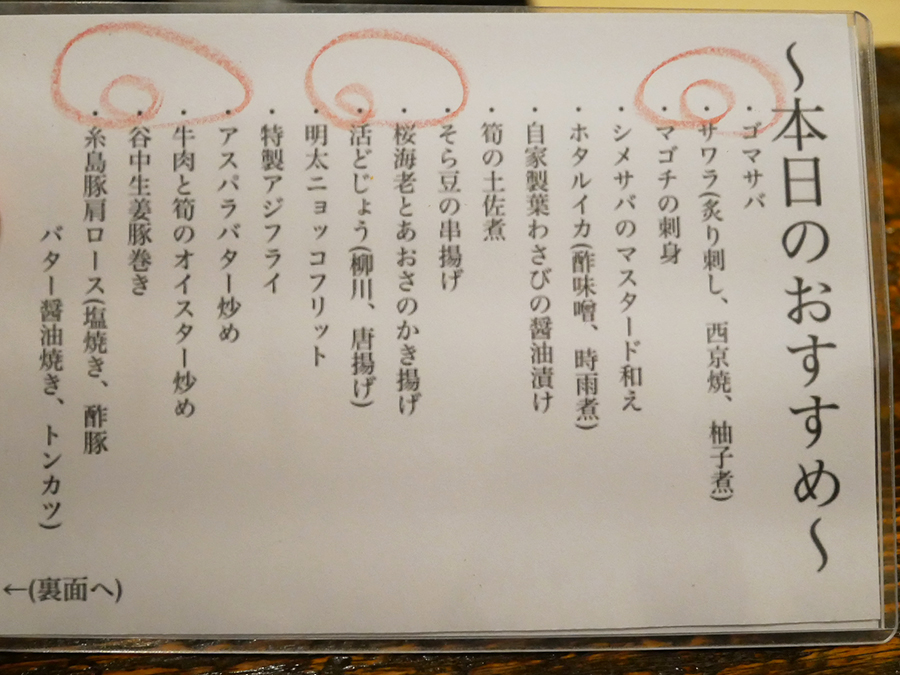 ～本日のおすすめ～
・ゴマサバ
・サワラ(炙り刺し、西京焼、柚子煮)
・マゴチの刺身
・シメサバのマスタード和え
・ホタルイカ(酢味噌、時雨煮)
・自家製葉わさびの醤油漬け
・筍の土佐煮
・そら豆の串揚げ
・桜海老とあおさのかき揚げ
・活どじょう(柳川、唐揚げ)
・明太ニョッコフリット
・特製アジフライ
・アスパラバター炒め
・牛肉と筍のオイスター炒め
・谷中生姜豚巻き
・糸島豚肩ロース(塩焼き、酢豚
バター醤油焼き、トンカツ)
←(裏面へ)